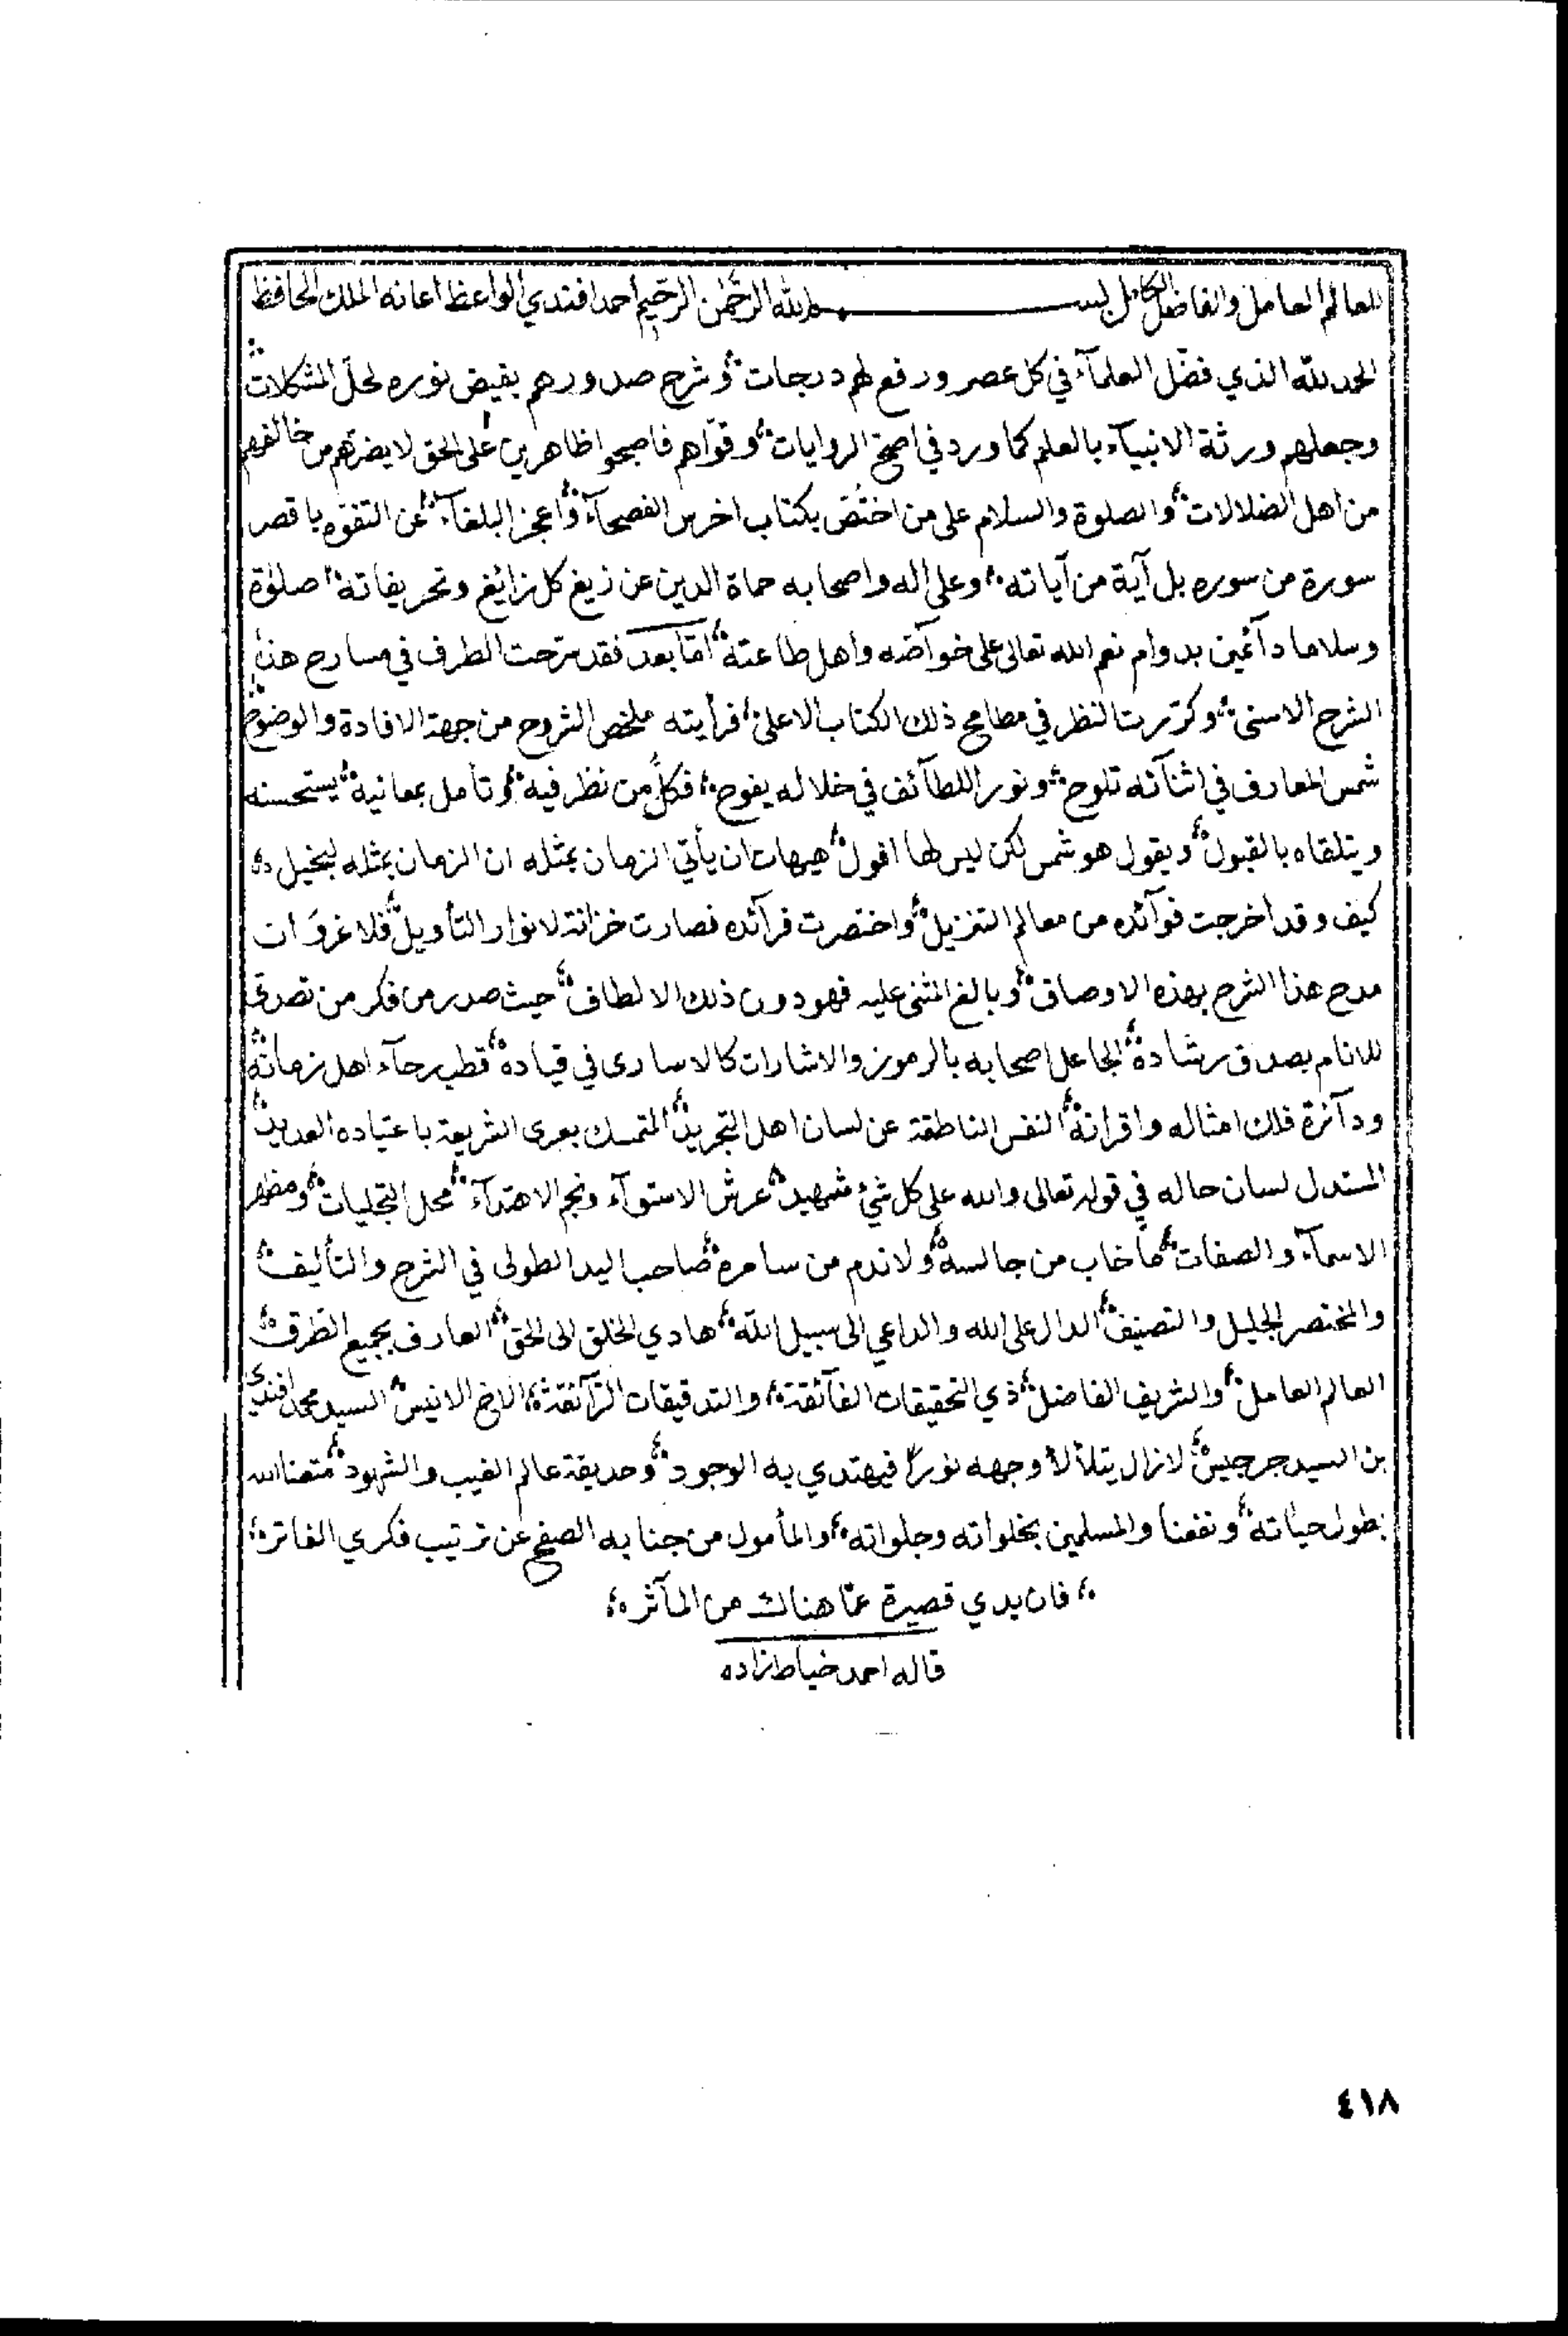 للعالم العامل والفاضل الكامل بسم الله الرحمن الرحيم احمد افندي الواعظ اعانه الملك الحافظ
الحمد لله الذي فضّل العلمآء في كل عصر ورفع لهم درجات وشرح صدورهم بفيض نوره لحلّ المشكلات
وجعلهم ورثة الانبيآء بالعلم كما ورد في اصحّ الروايات وقوّاهم فاصبحوا ظاهرين على الحق لا يضرّهم من خالفهم
من اهل الضلالات والصلوة والسلام على من اختصّ بكتاب اخرس الفصحآء واعجز البلغآء عن التفوّه باقصر
سورة من سوره بل آية من آياته وعلى اله واصحابه حماة الدين عن زيغ كل زائغ وتحريفاته صلوة
وسلاما دآئمين بدوام نعم الله تعالى على خوآصّه واهل طاعته امّا بعد فقد سرّحت الطرف في مسارح هذا
الشرح الاسنى وكرّرت النظر في مطامح ذلك الكتاب الاعلى فرأيته ملخص الشروح من جهة الافادة والوضوح
شمس المعارف في اثنآئه تلوح ونور اللطآئف في خلاله يفوح فكلّ من نظر فيه وتأمل بمعانيه يستحسنه
ويتلقاه بالقبول ويقول هو شمس لكن ليس لها افول هيهات ان يأتي الزمان بمثله ان الزمان بمثله لبخيل
كيف وقد اخرجت فوآئده من معالم التنزيل واختصرت فرآئده فصارت خزانة لانوار التأويل فلا غرو ان
مدح هذا الشرح بهذه الاوصاف وبالغ المثنى عليه فهو دون ذلك الالطاف حيث صدر من فكر من تصدى
للانام بصدق رشاده الجاعل اصحابه بالرموز والاشارات كالاسارى في قياده قطب رحآء اهل زمانه
ودآئرة فلك امثاله واقرانه النفس الناطقة عن لسان اهل التجريد المتمسك بعرى الشريعة باعتياده العديد
المستدل لسان حاله في قوله تعالى والله على كل شئ شهيد عرش الاستوآء ونجم الاهتدآء محل التجليات ومظهر
الاسمآء والصفات ما خاب من جالسه ولا ندم من سامره صاحب اليد الطولى في الشرح والتأليف
والمختصر الجليل والتصنيف الدال على الله والداعي الى سبيل الله هادي الخلق الى الحق العارف بجميع الطرق
العالم العامل والشريف الفاضل ذي التحقيقات الفآئقة والتدقيقات الرآئقة الاخ الانيس السيد محمد افندي
بن السيد جرجيس لا زال يتلألأ وجهه نورًا فيهتدي به الوجود وحديقة عالم الغيب والشهود متعنا الله
بطول حياته ونفعنا والمسلمين بخلواته وجلواته والمأمول من جنابه الصفح عن ترتيب فكري الفاتر
فان يدي قصيرة عمّا هناك من المآثر
قاله احمد خياط زاده
٤١٨